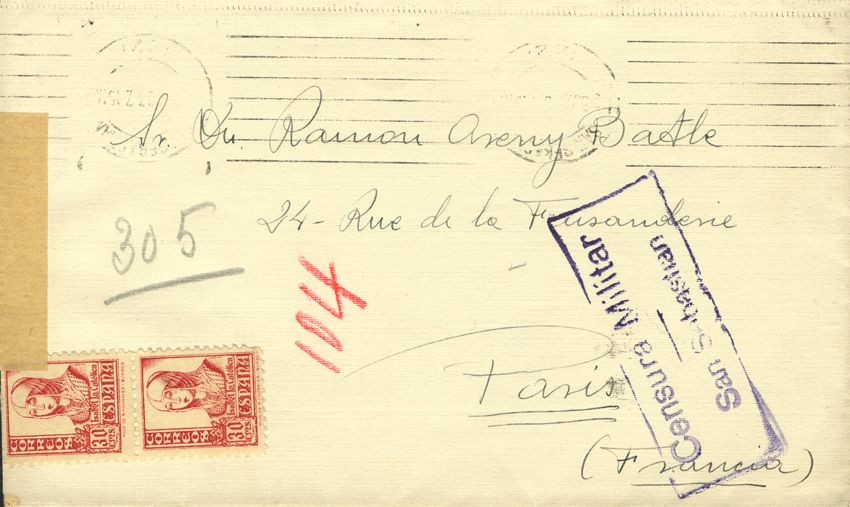 Sr. Dn. Ramon Areny Batlle
24 - Rue de la Faisanderie
305
104
Paris
(Francia)
Censura Militar
San Sebastian
CORREOS
30 CTS
Isabel la Católica
ESPAÑA
CORREOS
30 CTS
Isabel la Católica
ESPAÑA